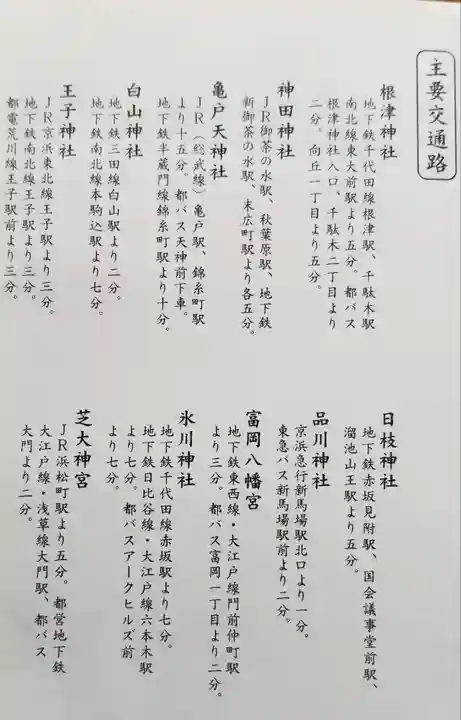 主要交通路
根津神社
地下鉄千代田線根津駅、千駄木駅
南北線東大前駅より五分。都バス
根津神社入口、千駄木二丁目より
二分。向丘一丁目より五分。
神田神社
ＪＲ御茶の水駅、秋葉原駅、地下鉄
新御茶の水駅、末広町駅より各五分。
亀戸天神社
ＪＲ（総武線）亀戸駅、錦糸町駅
より十五分。都バス天神前下車。
地下鉄半蔵門線錦糸町駅より十分。
白山神社
地下鉄三田線白山駅より二分。
地下鉄南北線本駒込駅より七分。
王子神社
ＪＲ京浜東北線王子駅より三分。
地下鉄南北線王子駅より三分。
都電荒川線王子駅前より三分。
日枝神社
地下鉄赤坂見附駅、国会議事堂前駅、
溜池山王駅より五分。
品川神社
京浜急行新馬場駅北口より一分。
東急バス新馬場駅前より二分。
富岡八幡宮
地下鉄東西線・大江戸線門前仲町駅
より三分。都バス富岡一丁目より二分。
氷川神社
地下鉄千代田線赤坂駅より七分。
地下鉄日比谷線・大江戸線六本木駅
より七分。都バスアークヒルズ前
より七分。
芝大神宮
ＪＲ浜松町駅より五分。都営地下鉄
大江戸線・浅草線大門駅、都バス
大門より二分。